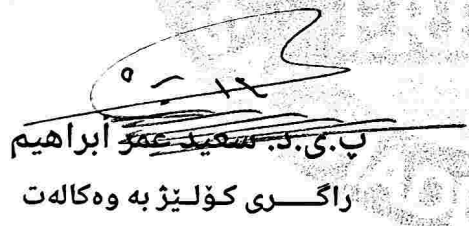 پ.ی.د. سعید عمر ابراهیم
راگری کۆلیژ به وەکالەت